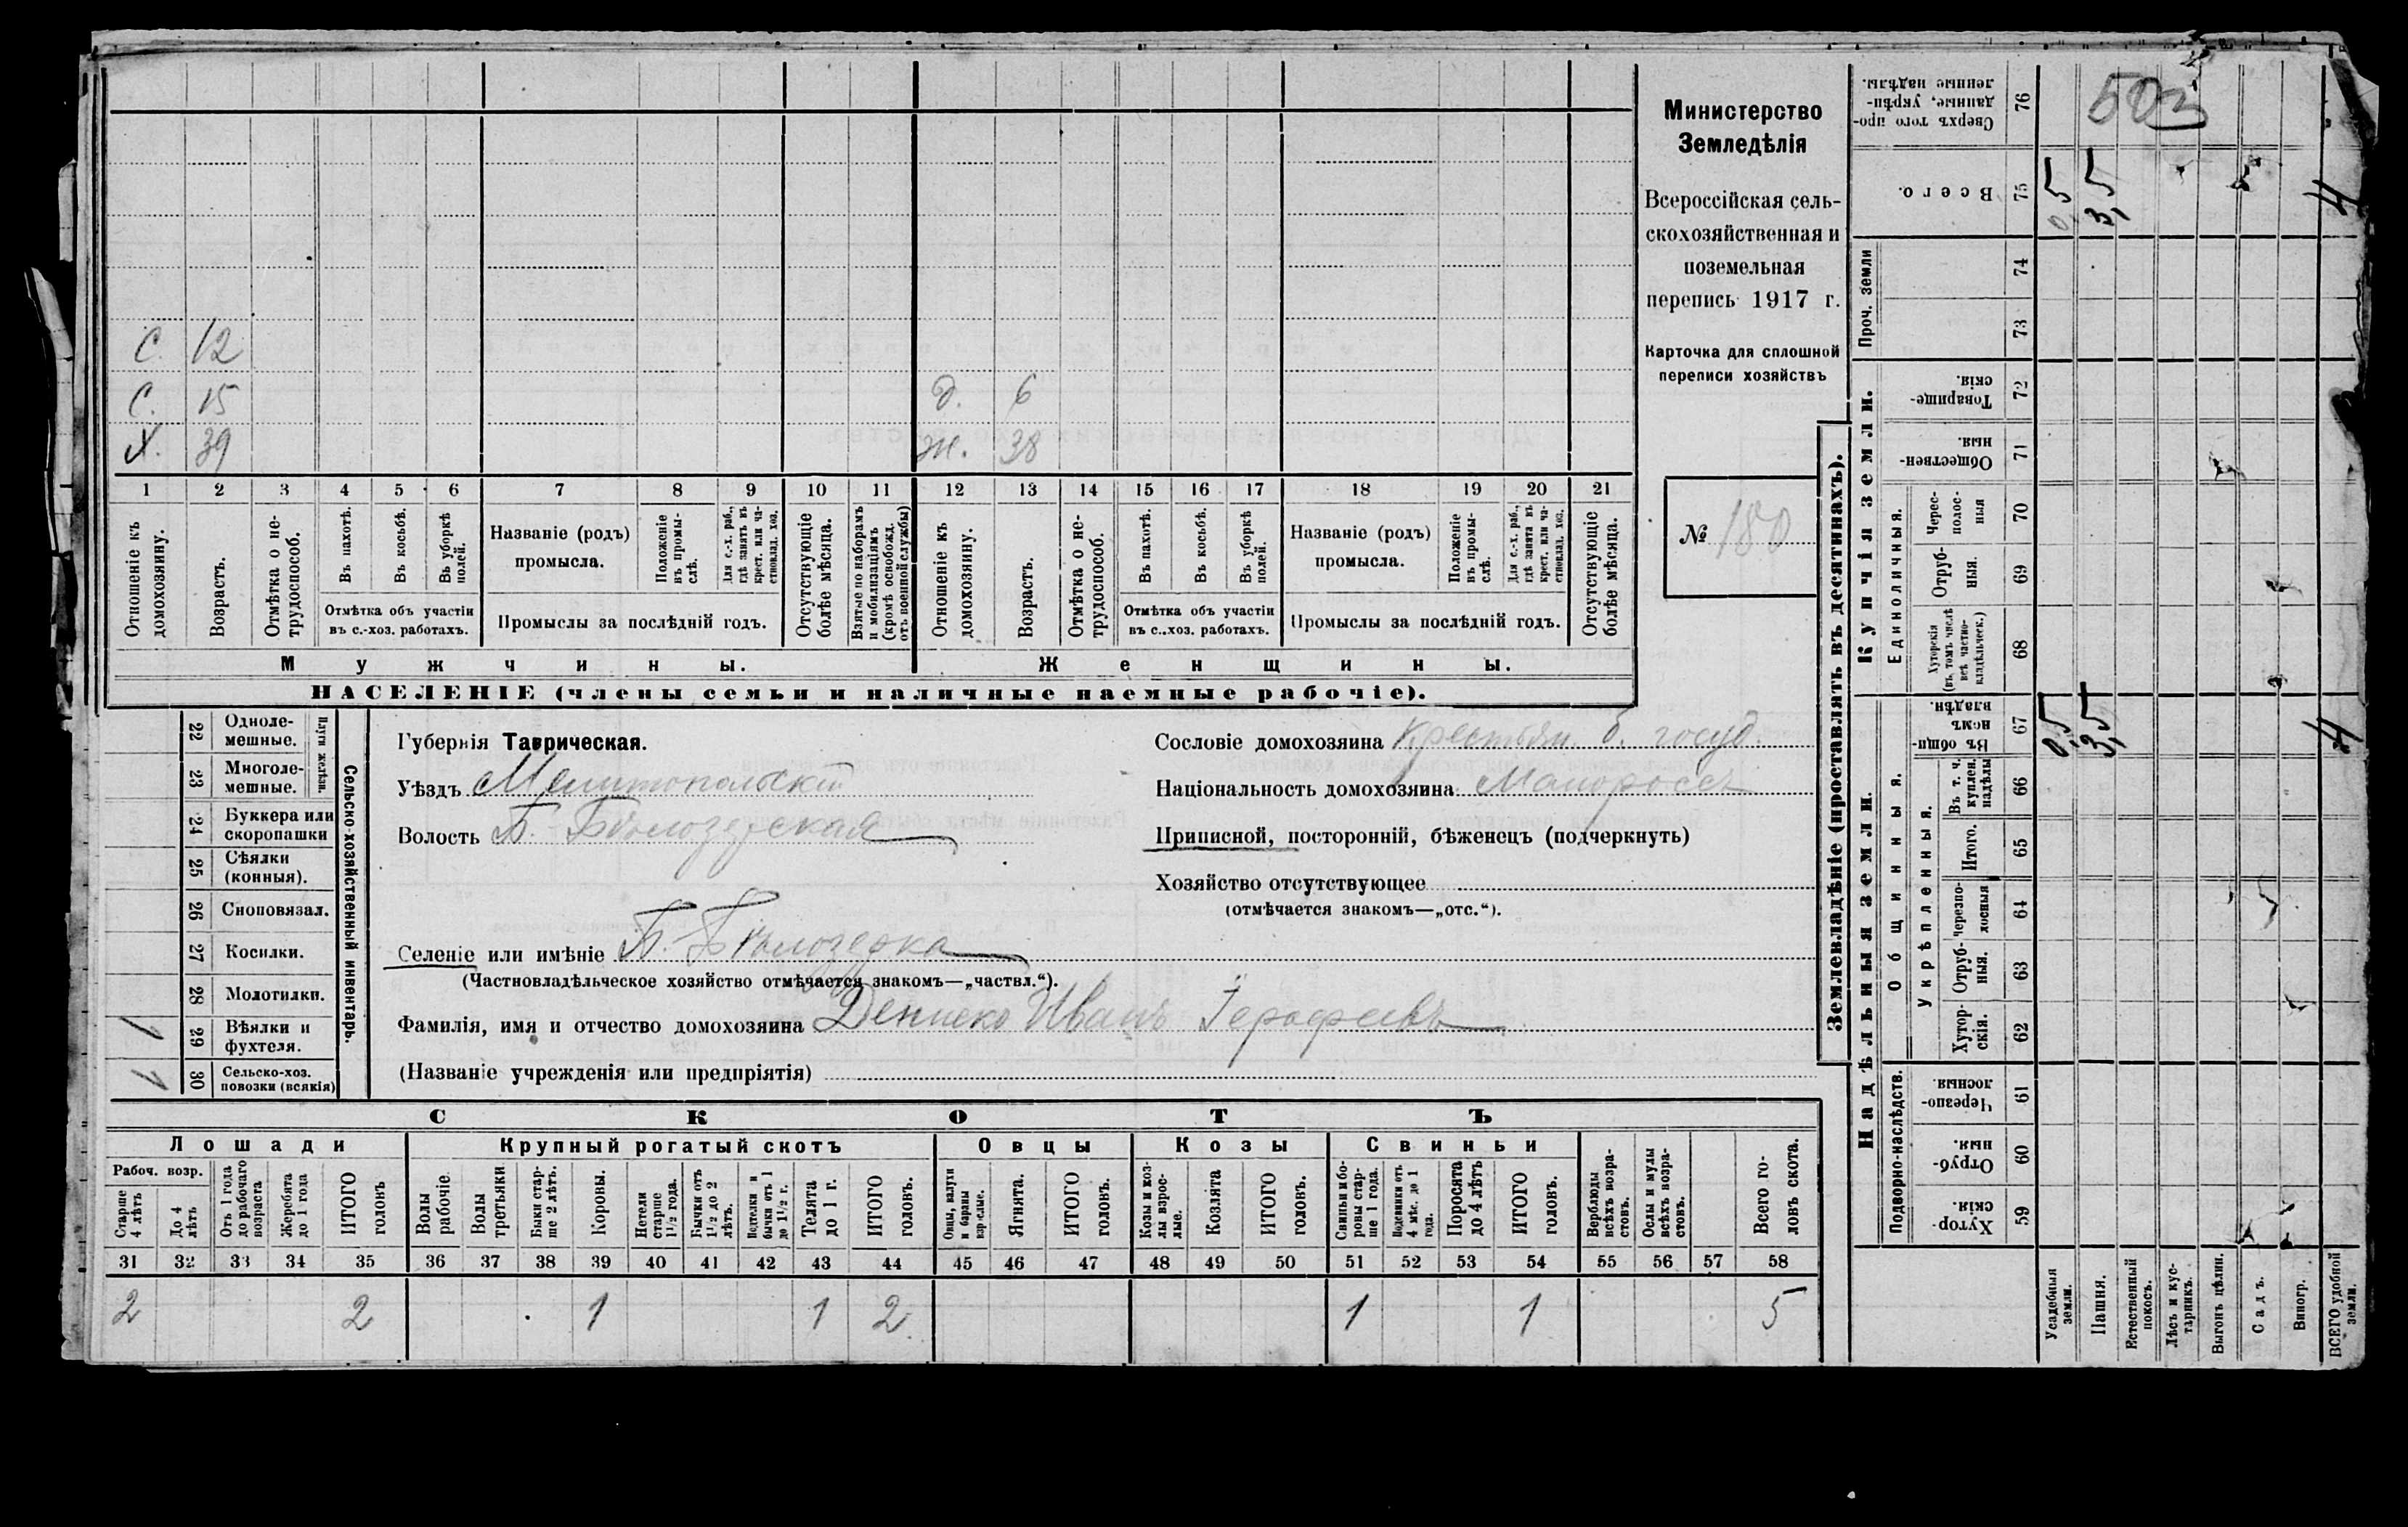 503
Министерство
Земледѣлія
Всероссійская сель-
скохозяйственная и
поземельная
перепись 1917 г.
Карточка для сплошной
переписи хозяйствъ
№ 180
С. 12
С. 15 д. 6
Х. 39 ж. 38
1 2 3 4 5 6 7 8 9 10 11 12 13 14 15 16 17 18 19 20 21
Отношеніе къ домохозяину.
Возрастъ.
Отмѣтка о не-трудоспособ.
Въ пахотѣ.
Въ косьбѣ.
Въ уборкѣ полей.
Отмѣтка объ участіи
въ с.-хоз. работахъ.
Названіе (родъ)
промысла.
Положеніе въ промы-слѣ.
Для с.-х. раб., гдѣ занятъ въ крест. или ча-стновлад. хоз.
Промыслы за послѣдній годъ.
Отсутствующіе болѣе мѣсяца.
Взятые по наборамъ и мобилизаціямъ (кромѣ освобожд. отъ военной службы)
Отношеніе къ домохозяину.
Возрастъ.
Отмѣтка о не-трудоспособ.
Въ пахотѣ.
Въ косьбѣ.
Въ уборкѣ полей.
Отмѣтка объ участіи
въ с.-хоз. работахъ.
Названіе (родъ)
промысла.
Положеніе въ промы-слѣ.
Для с.-х. раб., гдѣ занятъ въ крест. или ча-стновлад. хоз.
Промыслы за послѣдній годъ.
Отсутствующіе болѣе мѣсяца.
Мужчины. Женщины.
НАСЕЛЕНІЕ (члены семьи и наличные наемные рабочіе).
22 Одноле-мешные.
23 Многоле-мешные.
Плуги желѣзн.
24 Буккера или скоропашки
25 Сѣялки (конныя).
26 Сноповязал.
27 Косилки.
28 Молотилки.
1 29 Вѣялки и фухтеля.
1 30 Сельско-хоз. повозки (всякія)
Сельско-хозяйственный инвентарь.
Губернія Таврическая.
Уѣздъ Мелитопольскій
Волость Б. Бѣлозерская
Сословіе домохозяина Крестьян. б. госуд.
Національность домохозяина Малороссъ
Приписной, посторонній, бѣженецъ (подчеркнуть)
Хозяйство отсутствующее
(отмѣчается знакомъ—„отс.“).
Селеніе или имѣніе Б. Бѣлозерка
(Частновладѣльческое хозяйство отмѣчается знакомъ—„частвл.“).
Фамилія, имя и отчество домохозяина Иванъ
(Названіе учрежденія или предпріятія)
СКОТЪ
Лошади Крупный рогатый скотъ Овцы Козы Свиньи
Рабоч. возр.
Старше 4 лѣтъ
До 4 лѣтъ
Отъ 1 года до рабочаго возраста
Жеребята до 1 года
ИТОГО головъ
Волы рабочіе.
Волы третьяки.
Быки стар-ше 2 лѣтъ.
Коровы.
Нетели старше 1½ года.
Бычки отъ 1½ до 2 лѣтъ.
Подтелки и бычки отъ 1 до 1½ г.
Телята до 1 г.
ИТОГО головъ.
Овцы, валухи и бараны взрослые.
Ягнята.
ИТОГО головъ.
Козы и коз-лы взрос-лые.
Козлята
ИТОГО головъ.
Свиньи и бо-ровы стар-ше 1 года.
Подсвинки отъ 4 мѣс. до 1 года.
Поросята до 4 лѣтъ
ИТОГО головъ.
Верблюды всѣхъ возра-стовъ.
Ослы и мулы всѣхъ возра-стовъ.
Всего го-ловъ скота.
31 32 33 34 35 36 37 38 39 40 41 42 43 44 45 46 47 48 49 50 51 52 53 54 55 56 57 58
2 2 1 1 2 1 1 5
Землевладѣніе (проставлять въ десятинахъ).
Купчія земли.
Надѣльныя земли.
Сверхъ того про-данные, укрѣп-ленные надѣлы. 76
Всего. 75 0,5 3,5 4
Проч. земли 74
73
Товарище-скія. 72
Обществен-ныя. 71
Единоличныя.
Черес-полос-ныя 70
Отруб-ныя. 69
Хуторскія (въ томъ числѣ всѣ частно-владѣльческ.) 68
Общинныя.
Въ общи-номъ владѣн. 67 0,5 3,5 4
Укрѣпленныя.
Въ т. ч. куплен. надѣлы 66
Итого. 65
Черезпо-лосныя 64
Отруб-ныя. 63
Хутор-скія. 62
Подворно-наслѣдств.
Черезпо-лосныя. 61
Отруб-ныя. 60
Хутор-скія. 59
Усадебныя земли.
Пашня.
Естественный покосъ.
Лѣсъ и кус-тарникъ.
Выгонъ цѣлин.
Садъ.
Виногр.
ВСЕГО удобной земли.